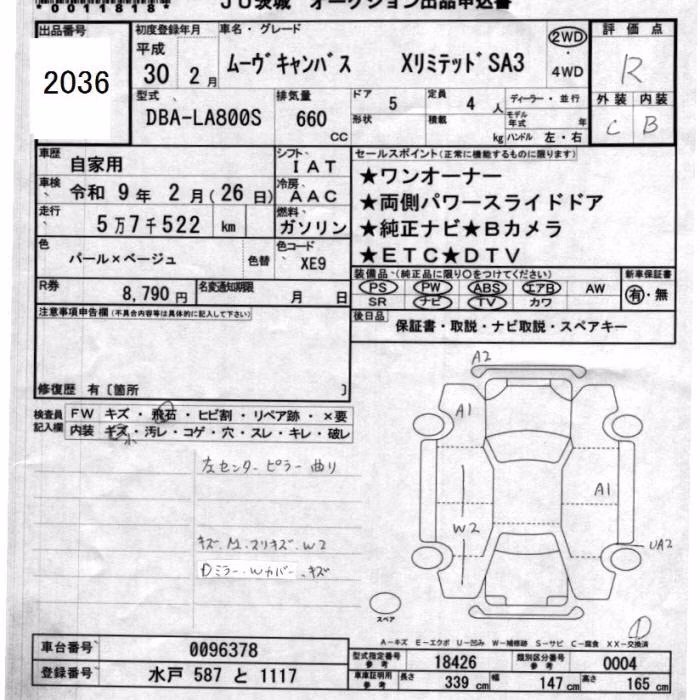 0011818
JU茨城 オークション出品申込書
出品番号
2036
初度登録年月
平成
30年 2月
車名・グレード
ムーヴキャンバス XリミテッドSA3
2WD
・
4WD
評価点
R
外装 内装
C B
型式
DBA-LA800S
排気量
660
CC
ドア 5
定員 4人
ディーラー・並行
形状
積載 kg
モデル年式 年
ハンドル 左・右
車歴 自家用
車検 令和 9年 2月(26日)
走行 5万7千522 km
色 パール×ベージュ 色替
シフト IAT
冷房 AAC
燃料 ガソリン
色コード XE9
セールスポイント(正常に機能するものに限ります)
★ワンオーナー
★両側パワースライドドア
★純正ナビ★Bカメラ
★ETC★DTV
装備品(純正品に限り○をつけてください)
PS PW ABS エアB AW
SR ナビ TV カワ
新車保証書
有・無
R券 8,790円
名変通知期限 月 日
後日品
保証書・取説・ナビ取説・スペアキー
注意事項申告欄(不具合内容等は具体的に記入して下さい)
修復歴 有〔箇所 〕
検査員記入欄
FW キズ・飛石・ヒビ割・リペア跡・×要
内装 キズ・汚レ・コゲ・穴・スレ・キレ・破レ
左センターピラー曲り
キズ.M.スリキズ.W2
Dミラー.Wカバー.キズ
A2
A1
A1
W2
UA2
スペア
A-キズ E-エクボ U-凹み W-補修跡 S-サビ C-腐食 XX-交換済
車台番号 0096378
登録番号 水戸 587 と 1117
型式指定番号 参考 18426
類別区分番号 参考 0004
車庫証明用 参考 長さ 339cm 幅 147cm 高さ 165cm